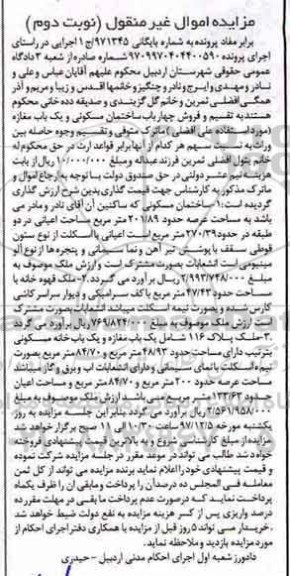 مزایده اموال غیر منقول (نوبت دوم)
برابر مفاد پرونده به شماره بایگانی ۹۷۱۳۴۵ ج ۱ اجرایی در راستای
اجرای پرونده ۹۷۰۹۹۷۰۴۰۴۴۰۰۵۹۰ شماره صادره از شعبه ۳ دادگاه
عمومی حقوقی شهرستان اردبیل محکوم علیهم آقایان عباس و علی و
نادر و مهدی و ایرج و نادر و چنگیز و خانمها اقدس و زیبا و مریم و آذر
همگی افضلی ثمرین و خانم گل گزبندی و صدیقه دده خانی محکوم
هستند به تقسیم و فروش چهار باب ساختمان مسکونی و یک باب مغازه
(مورد استفاده علی افضلی) ماترک متوفی و تقسیم وجوه حاصله بین
وراث به نسبت سهم هر کدام از آنها برابر قواعد ارث در حق محکوم له
خانم بتول افضلی ثمرین فرزند عداله و مبلغ ۱۰/۰۰۰/۰۰۰ ریال از بابت
هزینه نیم عشر دولتی در حق صندوق دولت با توجه به ارجاع اموال و
ماترک مذکور به کارشناس جهت قیمت گذاری بدین شرح ارزش گذاری
گردیده است: ۱- ساختمان مسکونی که ساکنین آن آقای نادر و مادر می
باشد به مساحت عرصه حدود ۲۰۱/۸۹ متر مربع مساحت اعیانی در دو
طبقه در حدود ۲۷۰/۳۹ متر مربع است اعیانی با اسکلت از نوع ستون
قوطی سقف با پوشش تیر آهن و نما سیمانی و پنجره ها از نوع آلو
مینیومی است انشعابات بصورت مشترک است و ارزش ملک موصوف به
مبلغ ۲/۹۹۳/۷۴۸/۰۰۰ ریال برآورد می گردد ۲- ملک قهوه خانه با
مساحت حدود ۴۷/۴۳ متر مربع با کف سرامیکی و دیوار سراسر کاشی
کارس شده و بصورت نیمه اسکلت میباشد انشعابات بصورت مشترک
است ارزش ملک موصوف به مبلغ ۷۶۹/۸۲۴/۰۰۰ ریال برآورد می گردد
۳- ملک پلاک ۱۱۶ شامل یک باب مغازه و یک باب خانه مسکونی
بترتیب دارای مساحت حدود ۴۸/۹۳ متر مربع و ۸۴/۷۰ متر مربع بصورت
نیم اسکلت با نمای سیمانی و دارای انشعابات اب و برق و گاز میباشد
مساحت عرصه حدود ۲۰۰ متر مربع و ۸۴/۷۰ متر مربع و مساحت اعیان
حدود ۱۳۳/۶۳ متر مربع می باشد ارزش ملک موصوف به مبلغ
۲/۵۶۱/۱۵۸/۰۰۰ ریال برآورد می گردد بنابر این جلسه مزایده به روز
یکشنبه مورخه ۹۷/۱۲/۵ ساعت ۱۰ الی ۱۱ صبح برگزار خواهد شد
مزایده از مبلغ کارشناسی شروع و به بالاترین قیمت پیشنهادی فروخته
خواه شد طالب می تواند در موعد مقرر در جلسه مزایده شرکت نموده
و قیمت پیشنهادی خود را اعلام نماید برنده مزایده می تواند از کل ثمن
معامله فی المجلس ده درصد آن را پرداخت و مابقی ان را ظرف یکماه
پرداخت نماید که در صورت عدم پرداخت ما بقی در مهلت مقرر ده
درصد واریزی پس از کسر هزینه مزایده به نفع دولت ضبط خواهد شد
خریدار می تواند ۵ روز قبل از مزایده با همکاری دفتر اجرای احکام از
مورد مزایده بازدید و ملاحظه نماید.
دادورز شعبه اول اجرای احکام مدنی اردبیل - حیدری